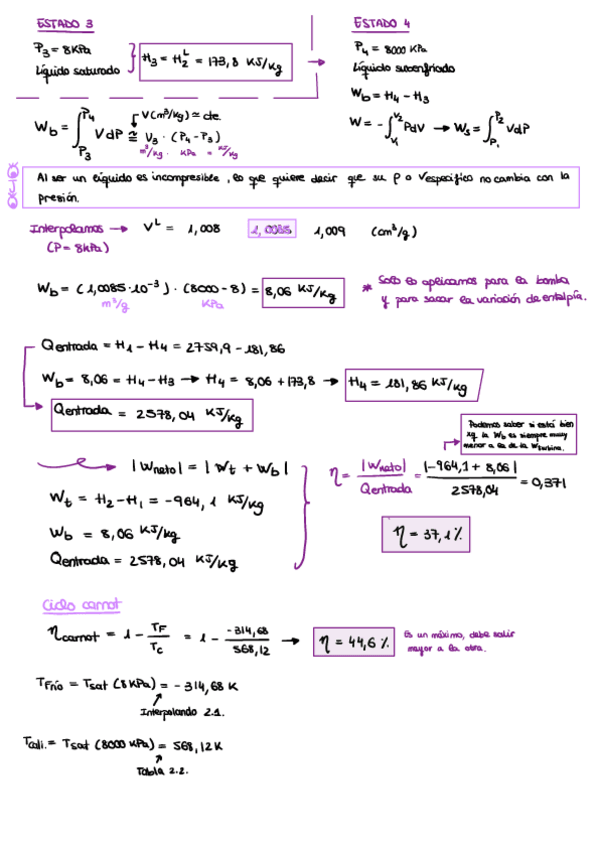 ESTADO 3
P₃ = 8 KPa
Líquido saturado
H₃ = H₂ᴸ = 173,8 KJ/Kg
ESTADO 4
P₄ = 8000 KPa
Líquido subenfriado
W_b = H₄ - H₃
W = -∫_{V₁}^{V₂} PdV → W_s = ∫_{P₁}^{P₂} VdP
W_b = ∫_{P₃}^{P₄} VdP ≅ V₃ · (P₄ - P₃)
V(m³/kg) ≃ cte.
m³/kg · KPa = KJ/Kg
Al ser un líquido es incompresible, lo que quiere decir que su ρ o Vespecífico no cambia con la
presión.
Interpolamos → Vᴸ = 1,008 1,0085 1,009 (cm³/g)
(P = 8kPa)
W_b = (1,0085·10⁻³) · (8000 - 8) = 8,06 KJ/Kg
m³/g KPa
* Solo lo aplicamos para la bomba
y para sacar la variación de entalpía.
Qentrada = H₁ - H₄ = 2759,9 - 181,86
W_b = 8,06 = H₄ - H₃ → H₄ = 8,06 + 173,8 → H₄ = 181,86 KJ/Kg
Qentrada = 2578,04 KJ/Kg
Podemos saber si está bien
xq la W_b es siempre muy
menor a la de la Wturbina.
|Wneto| = |W_t + W_b|
W_t = H₂ - H₁ = -964,1 KJ/Kg
W_b = 8,06 KJ/Kg
Qentrada = 2578,04 KJ/Kg
η = |Wneto| / Qentrada = |-964,1 + 8,06| / 2578,04 = 0,371
η = 37,1 %
Ciclo carnot
ηcarnot = 1 - T_F / T_C = 1 - -314,68 / 568,12 → η = 44,6 %
Es un máximo, debe salir
mayor a la otra.
T_Frío = Tsat (8 KPa) = -314,68 K
Interpolando 2.1.
Tcali. = Tsat (8000 KPa) = 568,12 K
Tabla 2.2.